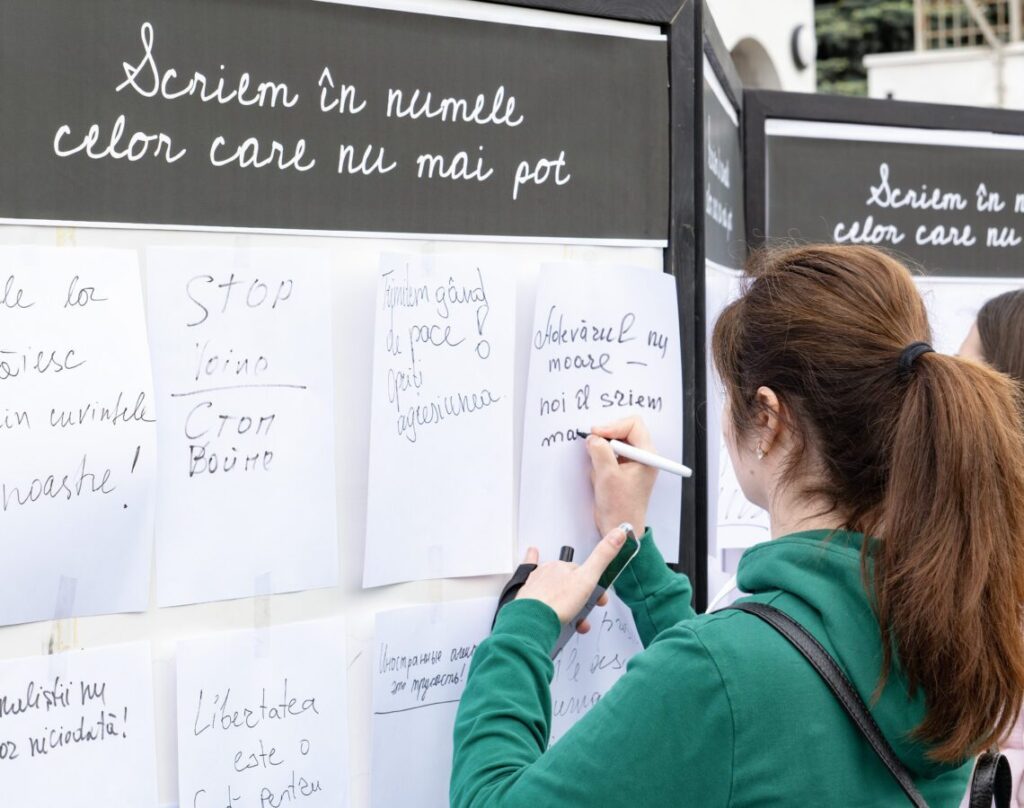 Scriem în numele
celor care nu mai pot
Scriem în
celor care nu
le lor
din cuvintele
noastre!
STOP
Voina
Стоп
Войне
Trimitem gând
de pace!
opriți
agresiunea
Adevărul nu
moare –
noi îl scriem
ma
nu
niciodată!
Libertatea
este o
pentru
Иностранные
это трусость!